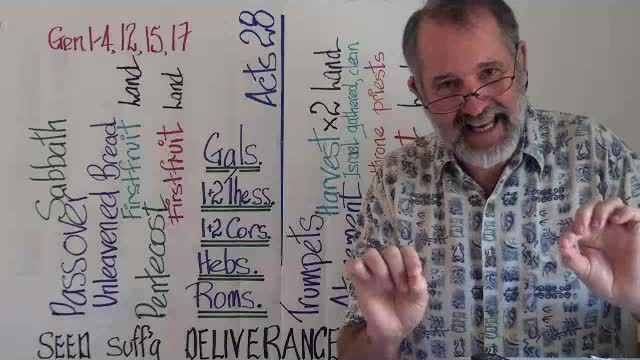 Gen 1-4, 12, 15, 17
Sabbath
Passover
Unleavened Bread
Firstfruit hand
Pentecost
Firstfruit hand
Acts 28
Gals.
1+2 Thess.
1+2 Cors.
Hebs.
Roms.
Trumpets
Harvest x2 hand
Israel gathered, clean
throne priests
SEED Suff'g DELIVERANCE